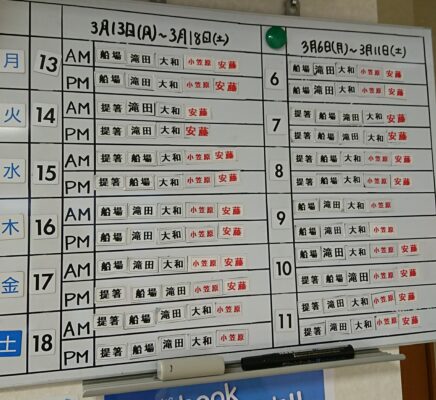 3月13日(月)～3月18日(土)
3月6日(月)～3月11日(土)
月 13 AM 船場 滝田 大和 小笠原 安藤
PM 船場 滝田 大和 小笠原 安藤
火 14 AM 提箸 滝田 大和 安藤
PM 提箸 滝田 大和 安藤
水 15 AM 提箸 船場 大和 小笠原 安藤
PM 提箸 船場 大和 小笠原 安藤
木 16 AM 船場 滝田 大和 小笠原 安藤
PM 船場 滝田 大和 小笠原 安藤
金 17 AM 船場 滝田 大和 小笠原 安藤
PM 提箸 船場 滝田 小笠原 安藤
土 18 AM 提箸 船場 滝田 大和 小笠原
PM 提箸 船場 滝田 大和 小笠原
6 船場 滝田 大和 小笠原 安藤
船場 滝田 大和 小笠原 安藤
7 提箸 船場 滝田 大和 安藤
提箸 船場 滝田 大和 安藤
8 提箸 船場 大和 小笠原 安藤
提箸 船場 大和 小笠原 安藤
9 船場 滝田 大和 小笠原
船場 滝田 大和 小笠原
10 船場 滝田 大和 小笠原 安藤
提箸 船場 滝田 小笠原 安藤
11 提箸 滝田 大和 小笠原 安藤
提箸 滝田 大和 小笠原 安藤
book